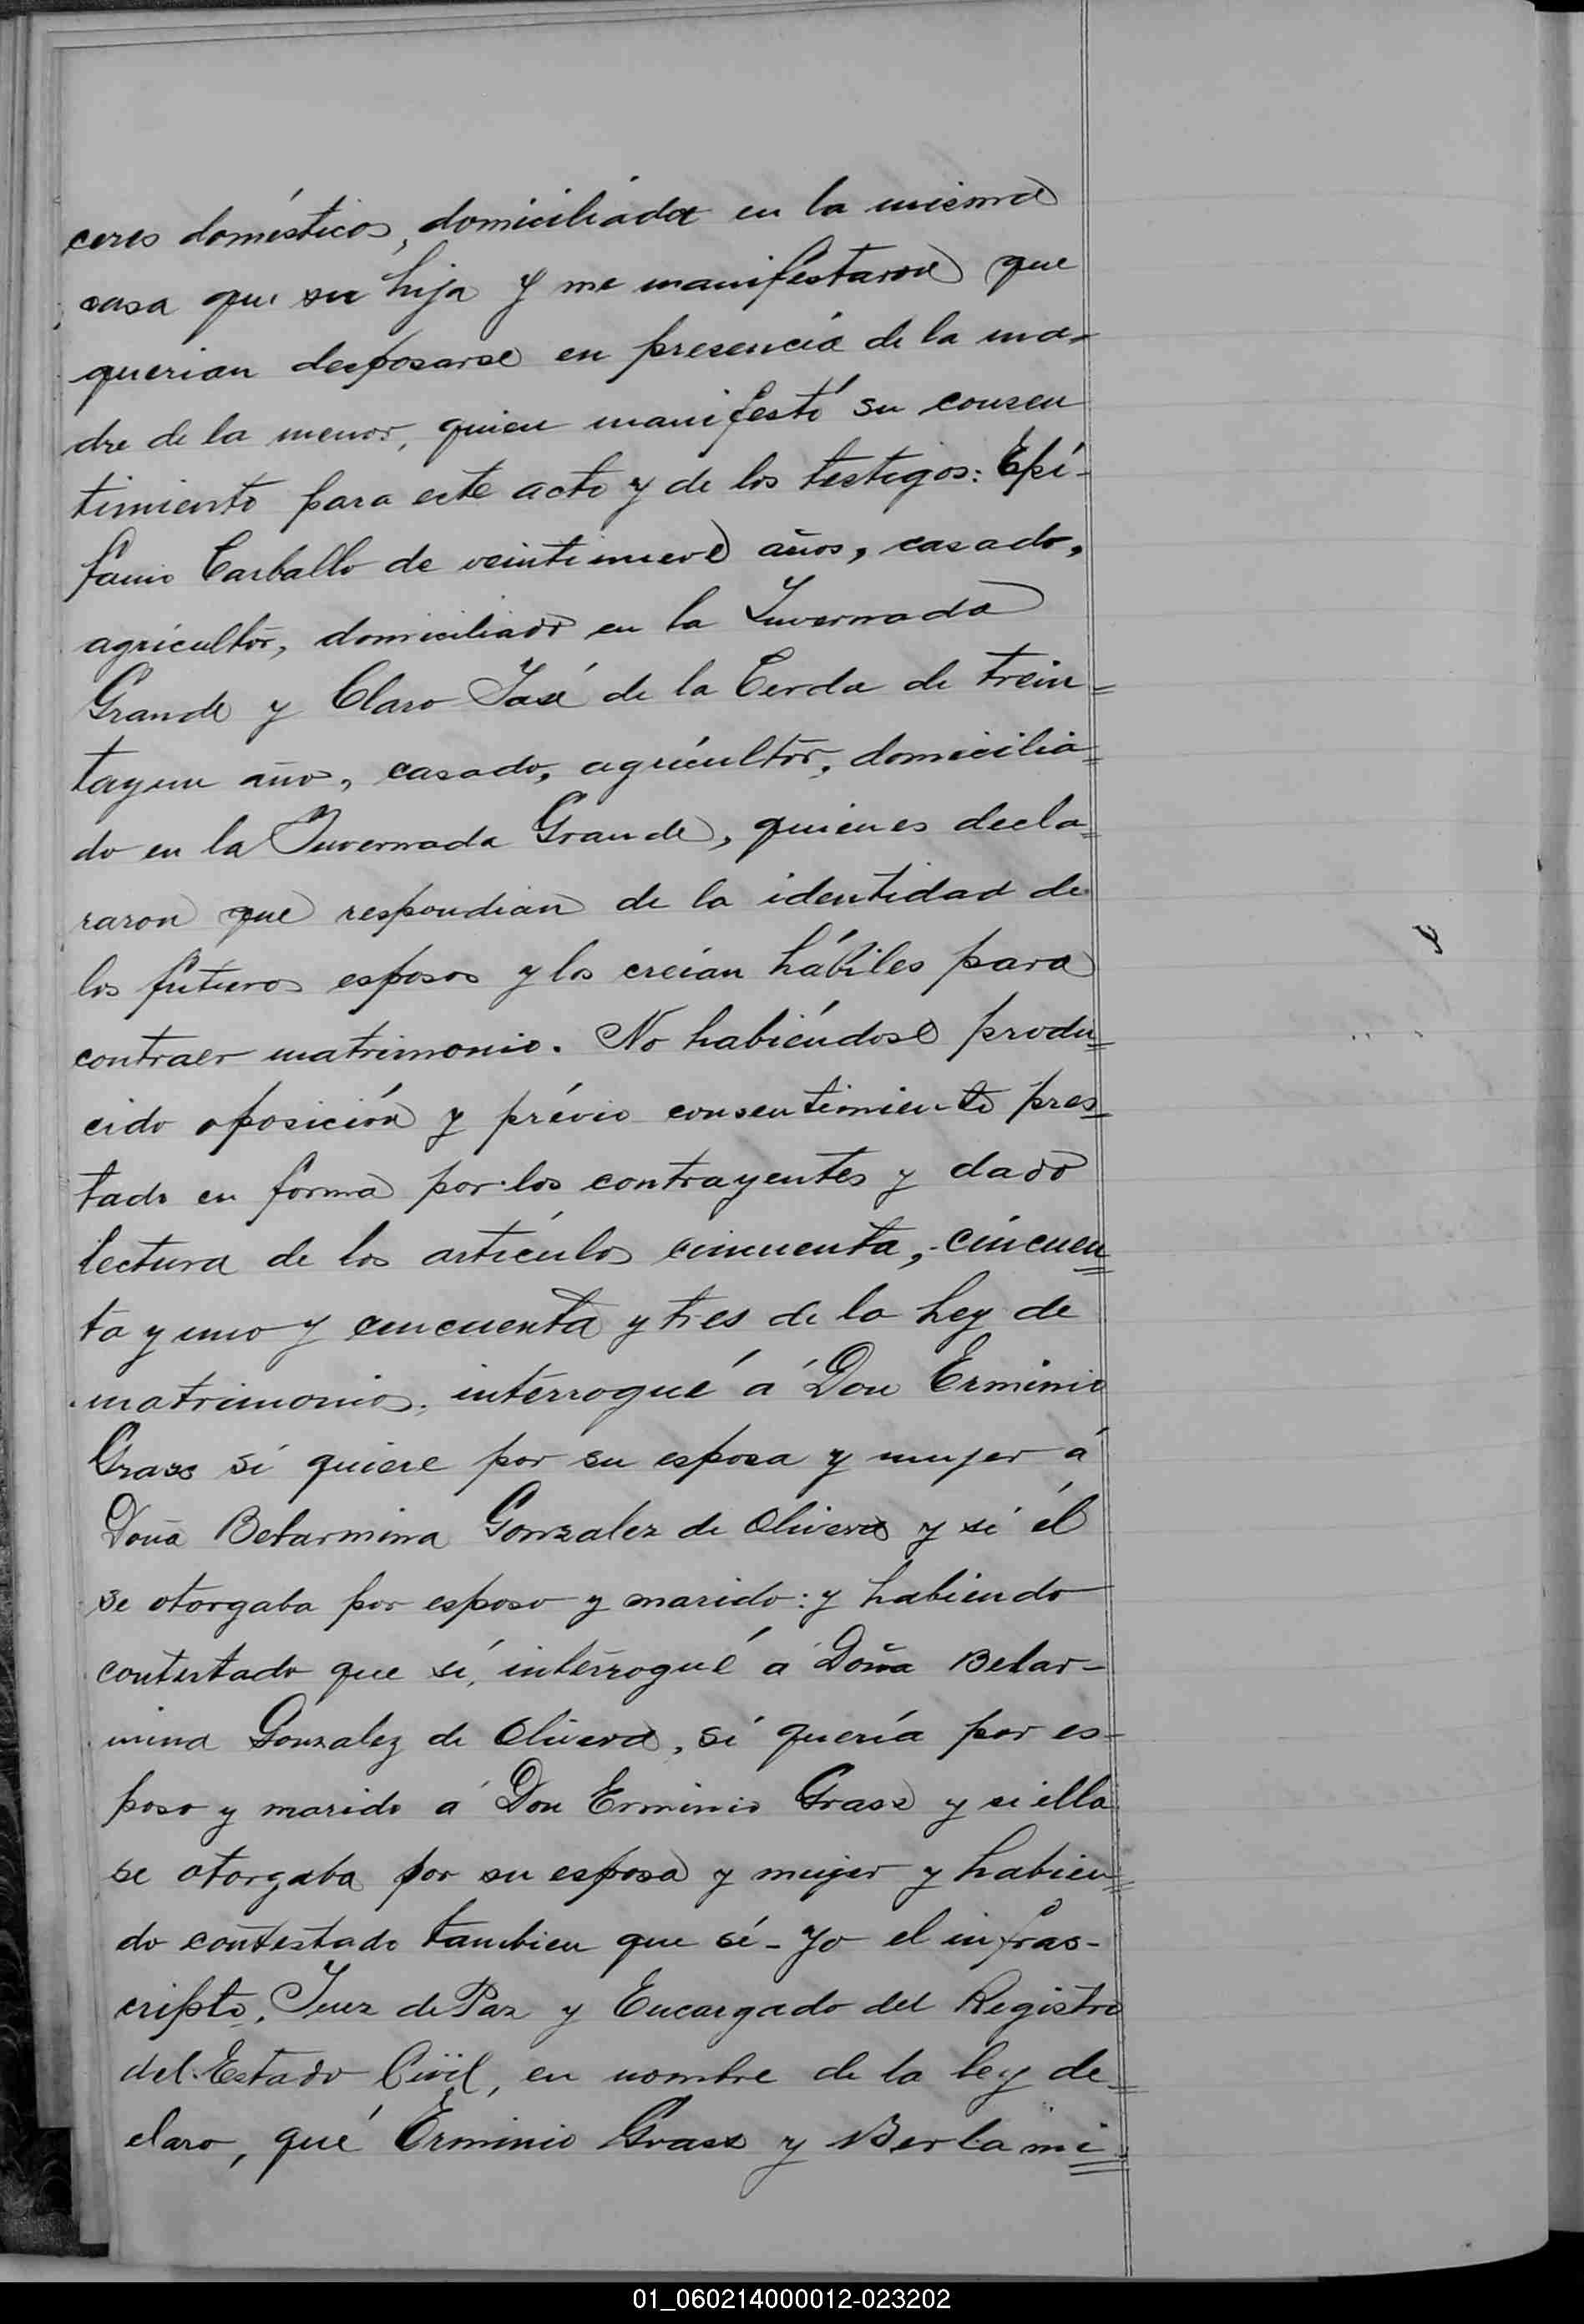 ceres domésticos, domiciliada en la misma
casa que su hija y me manifestaron que
querian desposarse en presencia de la ma-
dre de la menor, quien manifestó su consen
timiento para este acto y de los testigos: Epi-
fanio Carballo de veintinueve años, casado,
agricultor, domiciliado en la Invernada
Grande y Claro José de la Cerda de trein=
tayun años, casado, agricultor, domicilia=
do en la Invernada Grande, quienes decla=
raron que respondian de la identidad de
los futuros esposos y los creian hábiles para
contraer matrimonio. No habiéndose produ=
cido oposición y prévio consentimiento pres=
tado en forma por los contrayentes y dado
lectura de los artículos cincuenta, cincuen=
ta y uno y cincuenta y tres de la Ley de
matrimonio, interrogué á Don Erminio
Grass si quiere por su esposa y mujer á
Doña Belarmina Gonzalez de Olivera y si él
se otorgaba por esposo y marido: y habiendo
contestado que sí, interrogué á Doña Belar-
mina Gonzalez de Olivera, si quería por es-
poso y marido á Don Erminio Grass y si ella
se otorgaba por su esposa y mujer y habien=
do contestado tambien que sí - Yo el infras-
cripto, Juez de Paz y Encargado del Registro
del Estado Civil, en nombre de la ley de=
claro, qué Erminio Grass y Berlami=
01_060214000012-023202